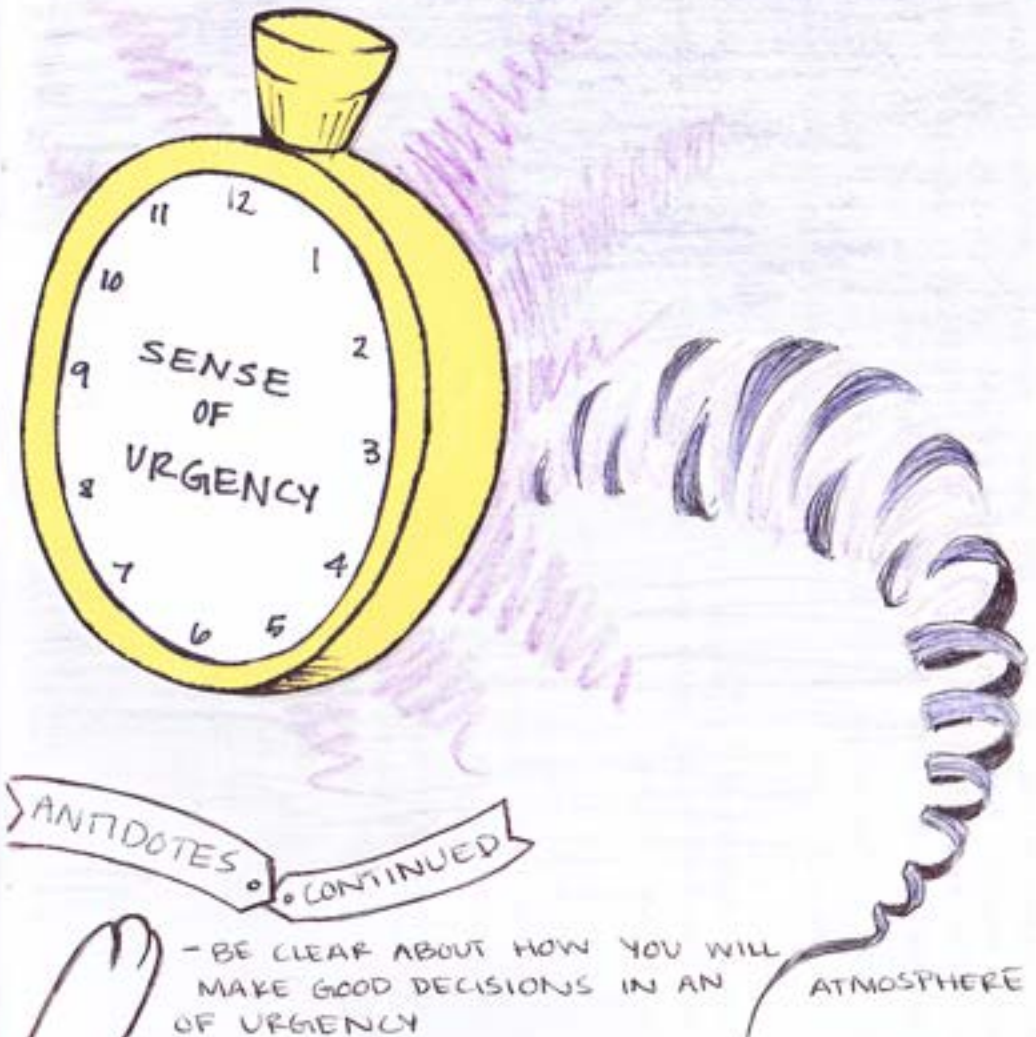 12
11
1
10
2
9
3
8
4
7
5
6
SENSE
OF
URGENCY
ANTIDOTES
CONTINUED
- BE CLEAR ABOUT HOW YOU WILL
MAKE GOOD DECISIONS IN AN ATMOSPHERE
OF URGENCY